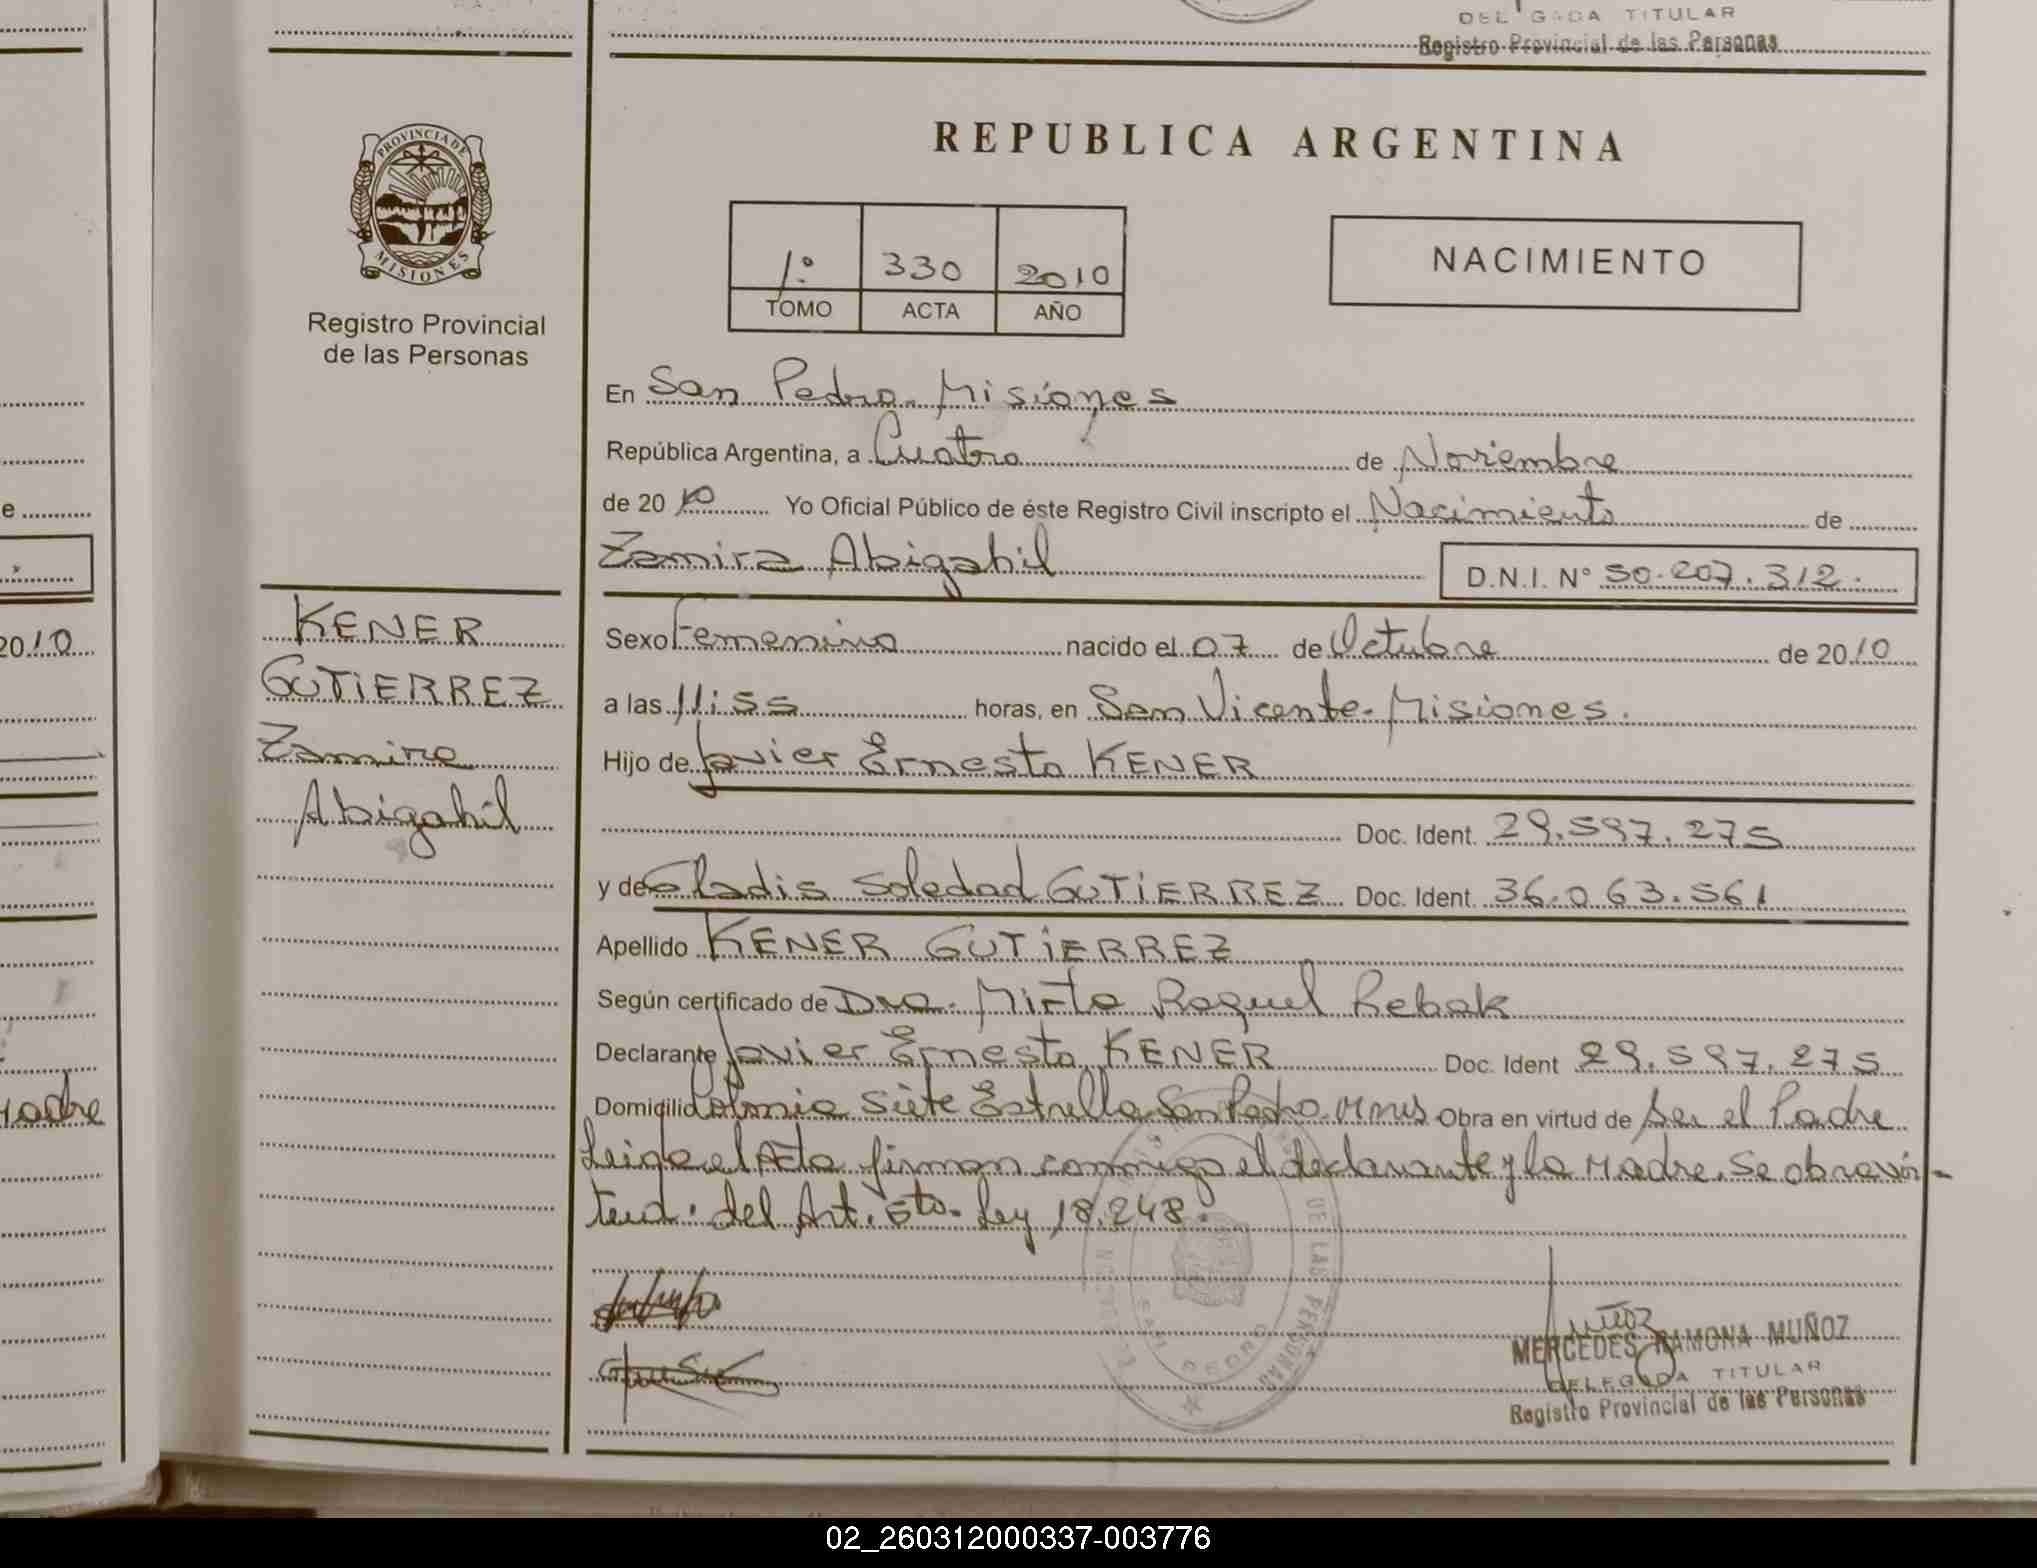 DELEGADA TITULAR
Registro Provincial de las Personas
PROVINCIA DE
MISIONES
Registro Provincial
de las Personas
REPUBLICA ARGENTINA
1º 330 2010
TOMO ACTA AÑO
NACIMIENTO
En San Pedro. Misiones
República Argentina, a Cuatro de Noviembre
de 2010 Yo Oficial Público de éste Registro Civil inscripto el Nacimiento de
Zamira Abigahil D.N.I. Nº 50.207.312.
KENER
GUTIERREZ
Zamira
Abigahil
Sexo Femenino nacido el 07 de Octubre de 2010
a las 11:55 horas, en San Vicente. Misiones.
Hijo de Javier Ernesto KENER
Doc. Ident. 29.597.275
y de Gladis Soledad GUTIERREZ Doc. Ident. 36.063.561
Apellido KENER GUTIERREZ
Según certificado de Dra. Mirta Raquel Rebak
Declarante Javier Ernesto KENER Doc. Ident 29.597.275
Domicilio Colonia Siete Estrella San Pedro. Mnes Obra en virtud de Ser el Padre
Leída el Acta firman conmigo el declarante y la Madre. Se obra vir-
tud. del Art. 5to. Ley 18.248.
DE LAS PERSONAS
SAN PEDRO
MUÑOZ
MERCEDES RAMONA MUÑOZ
DELEGADA TITULAR
Registro Provincial de las Personas
e
2010
Madre
02_260312000337-003776